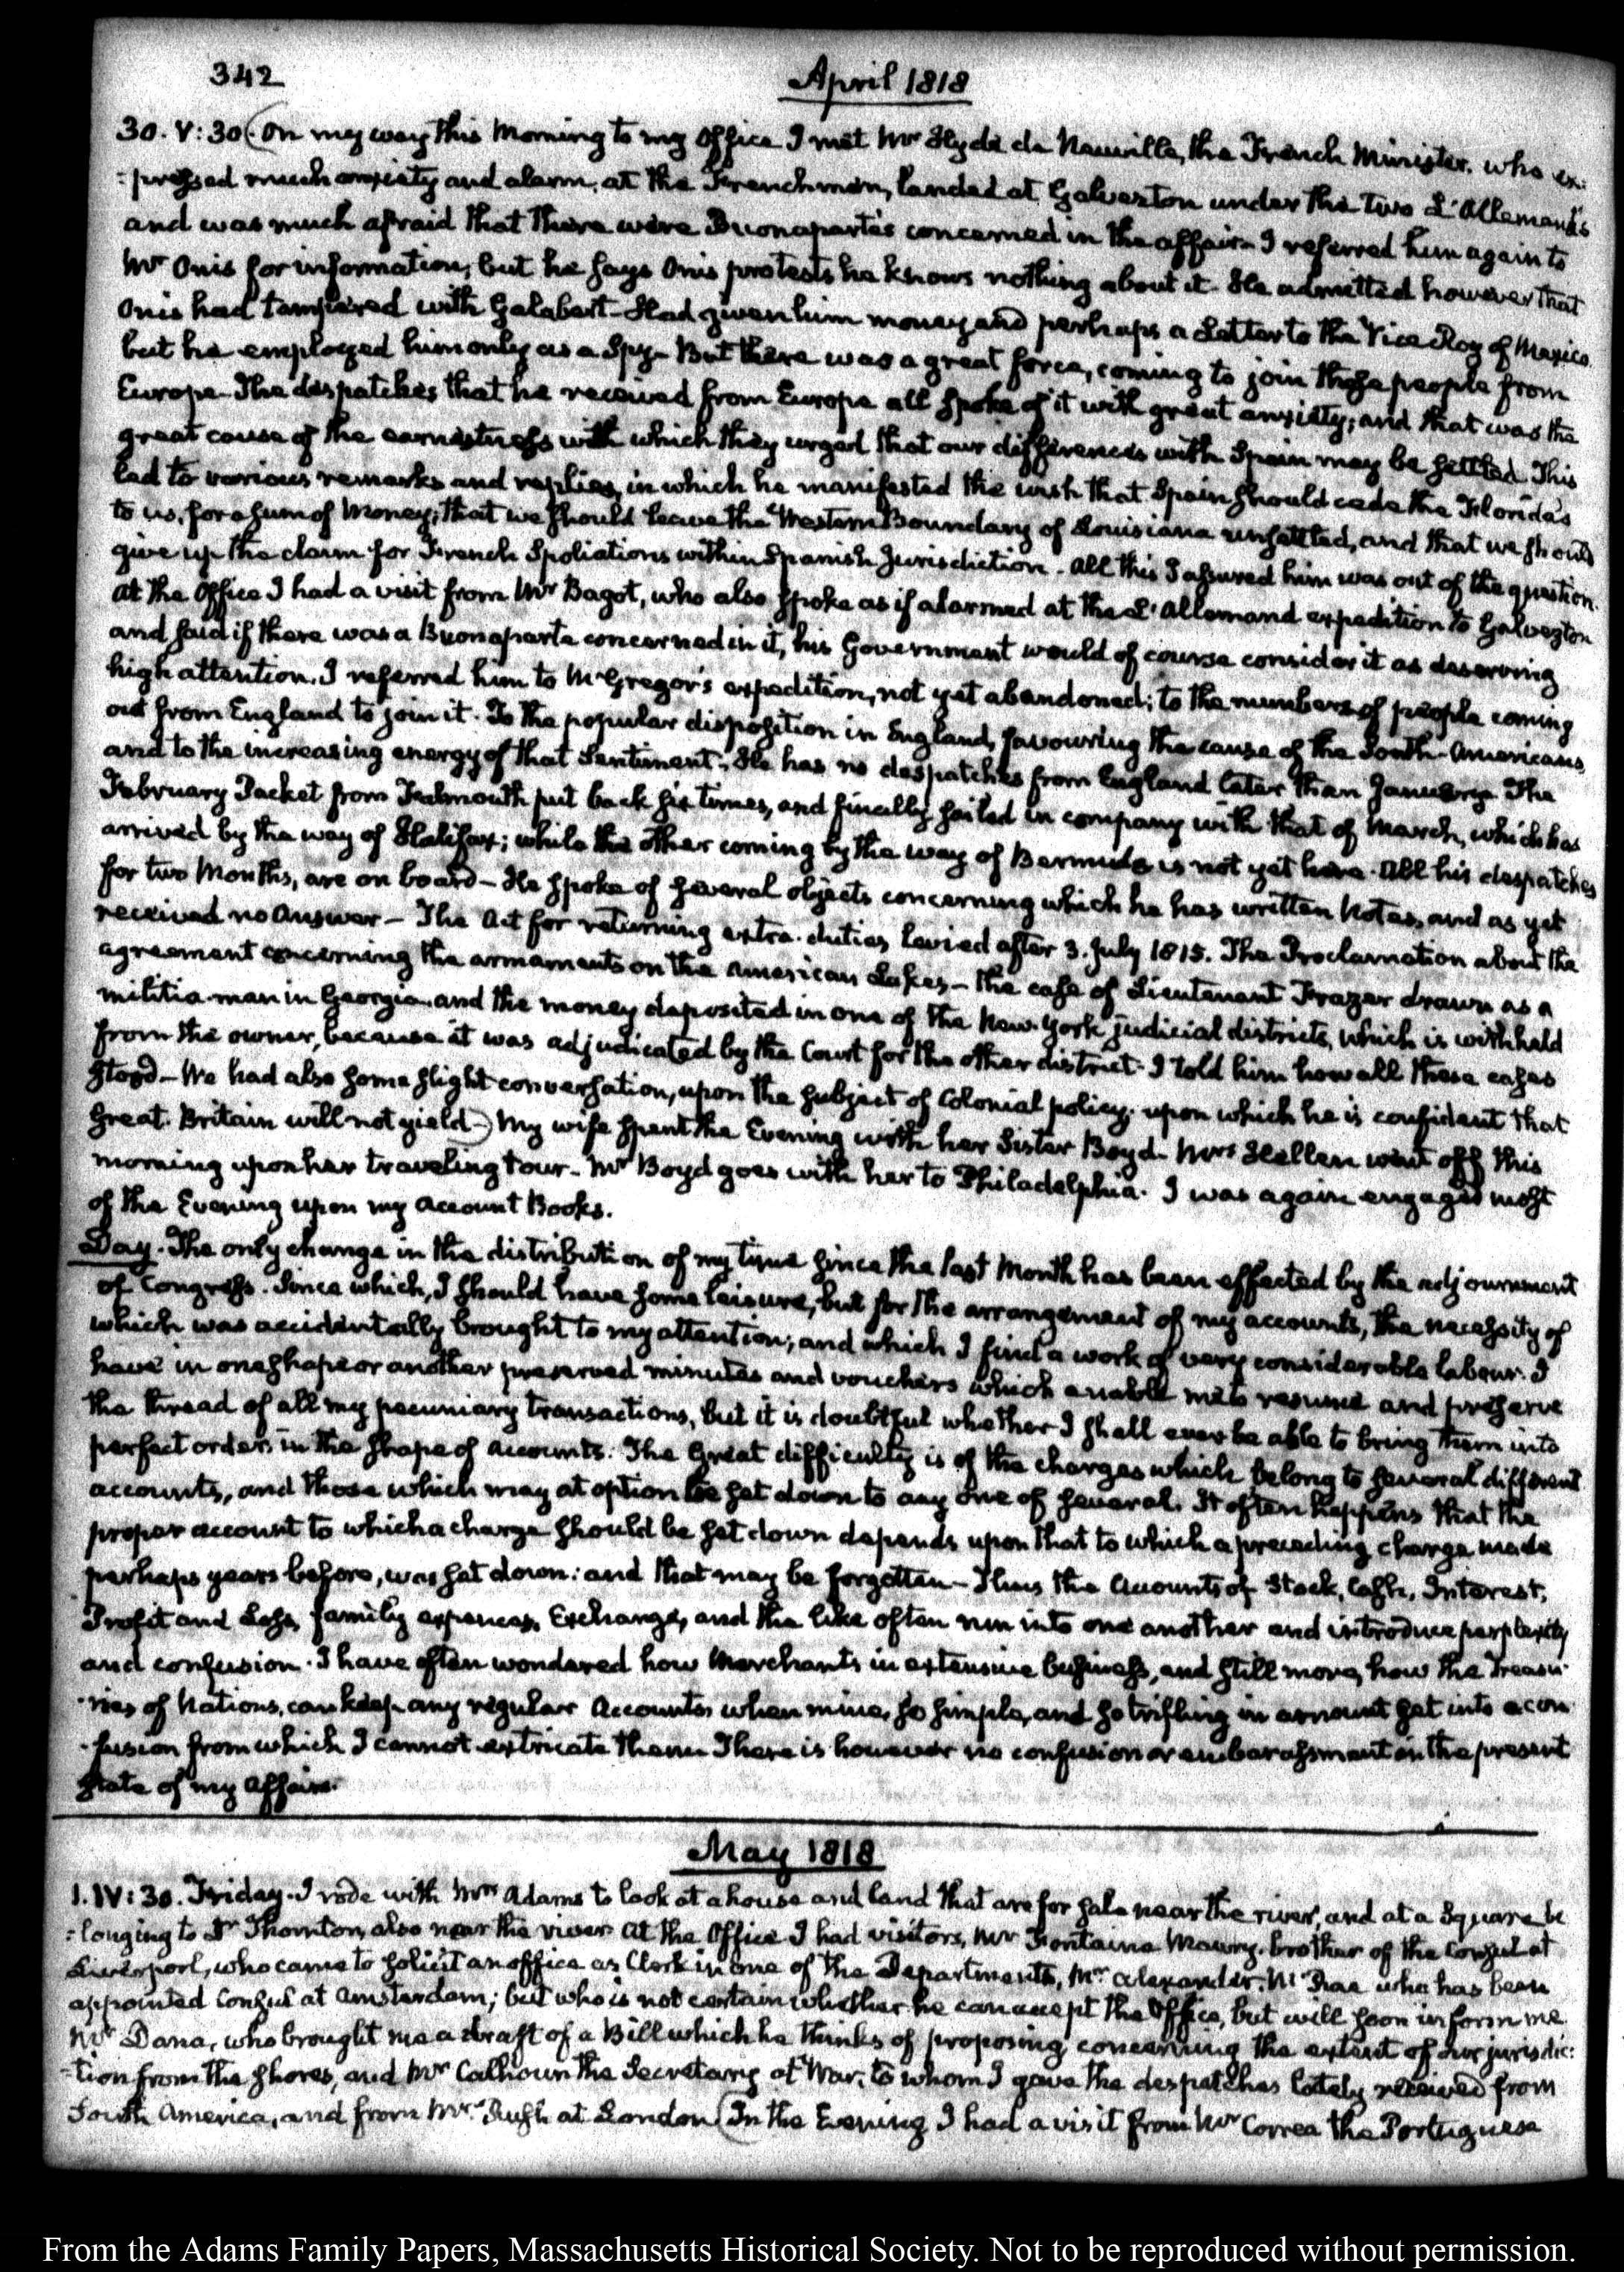 342
April 1818
30. V:30 (On my way this Morning to my Office I met Mr Hyde de Neuville, the French Minister, who ex:
:pressed much anxiety and alarm, at the Frenchmen, landed at Galveston under the two L'Allemand's
and was much afraid that there were Buonaparte's concerned in the affair. I referred him again to
Mr Onis for information, but he says Onis protests he knows nothing about it. He admitted however that
Onis had tampered with Galabert—Had given him money and perhaps a Letter to the Vice Roy of Mexico
but he employed him only as a Spy—But there was a great force, coming to join those people from
Europe. The despatches that he received from Europe all spoke of it with great anxiety; and that was the
great cause of the earnestness with which they urged that our differences with Spain may be settled. This
led to various remarks and replies, in which he manifested the wish that Spain should cede the Florida's
to us, for a sum of Money; that we should leave the Western Boundary of Louisiana unsettled, and that we should
give up the claim for French Spoliations within Spanish Jurisdiction. All this I assured him was out of the question.
At the Office I had a visit from Mr Bagot, who also spoke as if alarmed at the L'Allemand expedition to Galvezton
and said if there was a Buonaparte concerned in it, his Government would of course consider it as deserving
high attention. I referred him to McGregor's expedition, not yet abandoned; to the numbers of people coming
out from England to join it. To the popular disposition in England, favouring the cause of the South-Americans,
and to the increasing energy of that Sentiment. He has no despatches from England later than January. The
February Packet from Falmouth put back six times, and finally sailed in company with that of March, which has
arrived by the way of Halifax; while the other coming by the way of Bermuda is not yet here. All his despatches
for two Months, are on board—He spoke of several objects concerning which he has written Notes, and as yet
received no Answer—The Act for returning extra-duties levied after 3. July 1815. The Proclamation about the
agreement concerning the armaments on the American Lakes—the case of Lieutenant Frazer drawn as a
militia-man in Georgia, and the money deposited in one of the New-York judicial districts, which is withheld
from the owner, because it was adjudicated by the Court for the other district. I told him how all these cases
stood—We had also some slight conversation, upon the subject of Colonial policy: upon which he is confident that
Great-Britain will not yield—) My wife spent the Evening with her Sister Boyd—Mrs Hellen went off this
morning upon her traveling tour—Mr Boyd goes with her to Philadelphia. I was again engaged most
of the Evening upon my Account Books.
Day. The only change in the distribution of my time since the last Month has been effected by the adjournment
of Congress. Since which, I should have some leisure, but for the arrangement of my accounts, the necessity of
which was accidentally brought to my attention; and which I find a work of very considerable labour. I
have in one shape or another preserved minutes and vouchers which enable me to resume and preserve
the thread of all my pecuniary transactions, but it is doubtful whether I shall ever be able to bring them into
perfect order, in the shape of Accounts. The Great difficulty is of the charges which belong to several different
accounts, and those which may at option be set down to any one of several. It often happens that the
proper account to which a charge should be set down depends upon that to which a preceding charge made
perhaps years before, was set down: and that may be forgotten—Thus the Accounts of Stock, Cash, Interest,
Profit and Loss, family expences, Exchange, and the like often run into one another and introduce perplexity
and confusion. I have often wondered how Merchants in extensive business, and still more, how the Treasu-
-ries of Nations, can keep any regular Accounts when mine, so simple, and so trifling in amount get into a con-
-fusion from which I cannot extricate them. There is however no confusion or embarassment in the present
state of my affairs.
May 1818
1. IV:30. Friday. I rode with Mrs Adams to look at a house and land that are for sale near the river, and at a Square be
:longing to Dr Thornton, also near the river. At the Office I had visitors, Mr Fontaine Maury, brother of the Consul at
Liverpool, who came to solicit an office as Clerk in one of the Departments, Mr Alexander McRae who has been
appointed Consul at Amsterdam; but who is not certain whether he can accept the Office, but will soon inform me
Mr Dana, who brought me a draft of a Bill which he thinks of proposing concerning the extent of our jurisdic:
-tion from the shores, and Mr Calhoun the Secretary of War, to whom I gave the despatches lately received from
South America, and from Mr Rush at London (In the Evening I had a visit from Mr Correa the Portuguese
From the Adams Family Papers, Massachusetts Historical Society. Not to be reproduced without permission.